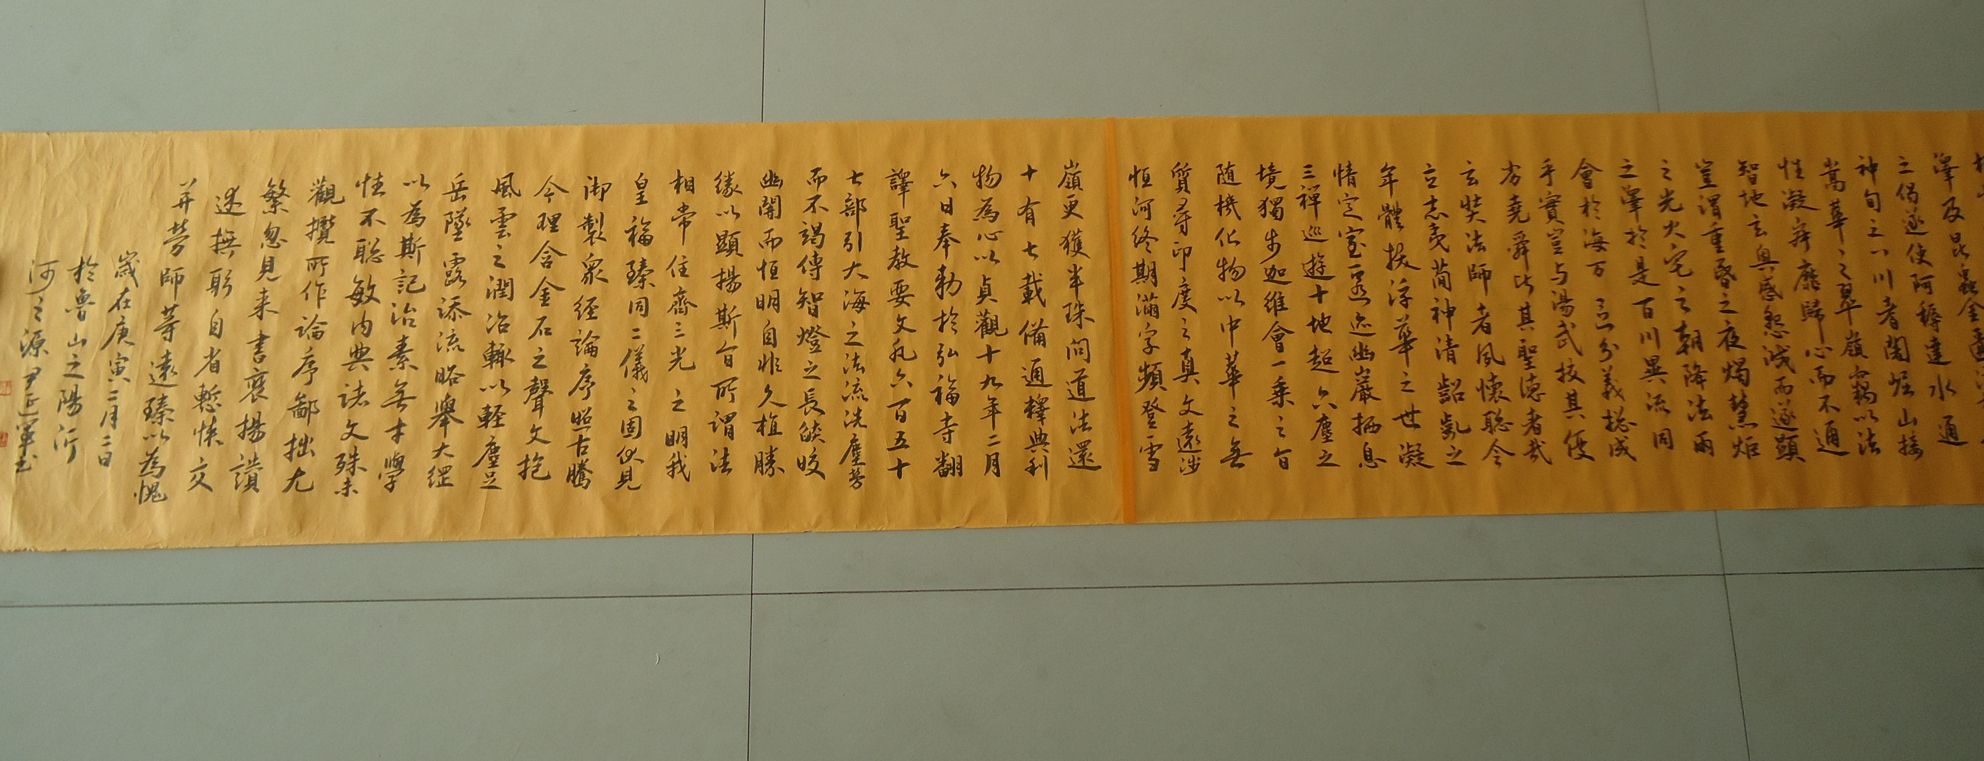 澤及昆蟲金匱流
三偈遂使阿耨達水通
神甸之八川耆闍崛山接
嵩華之翠嶺竊以法
性凝寂靡歸心而不通
智地玄奧感懇誠而遂顯
豈謂重昏之夜燭慧炬
之光火宅之朝降法雨
之澤於是百川異流同
會於海万區分義揔成
乎實豈与湯武挍其優
劣堯舜比其聖德者哉
玄奘法師者夙懷聡令
立志夷簡神清齠齔之
年體拔浮華之世凝
情定室匿迹幽巖栖息
三禪巡遊十地超六塵之
境獨步迦維會一乘之旨
随機化物以中華之無
質尋印度之真文遠涉
恒河終期滿字頻登雪
嶺更獲半珠問道法還
十有七載備通釋典利
物為心以貞觀十九年二月
六日奉勅於弘福寺翻
譯聖教要文凡六百五十
七部引大海之法流洗塵勞
而不竭傳智燈之長燄皎
幽闇而恒明自非久植勝
緣何以顯揚斯旨所謂法
相常住齊三光之明我
皇福臻同二儀之固伏見
御製衆經論序照古騰
今理含金石之聲文抱
風雲之潤治輒以輕塵足
岳墜露添流略舉大綱
以為斯記治素無才學
性不聡敏内典諸文殊未
觀攬所作論序鄙拙尤
繁忽見来書褒揚讚
述撫躬自省慙悚交
并勞師等遠臻以為愧
歲在庚寅二月二日
於魯山之陽沂
河之源